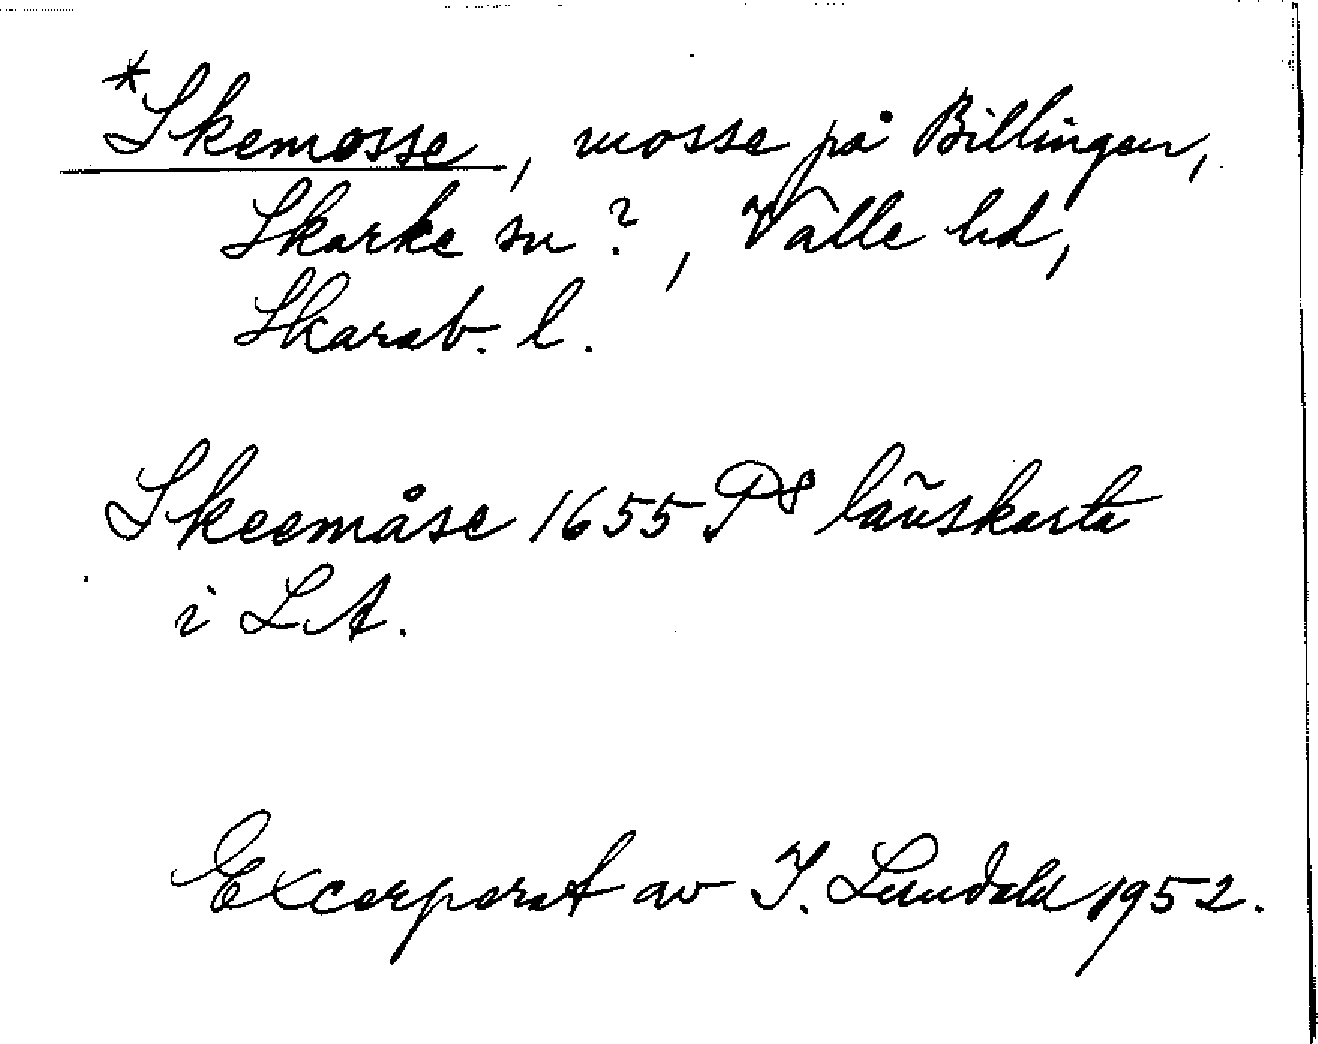 *Skemosse, mosse på Billingen,
Skarke sn?, Valle hd,
Skarab. l.
Skeemåse 1655 P8 länskarta
i LA.
Excerperat av I. Lundahl 1952.